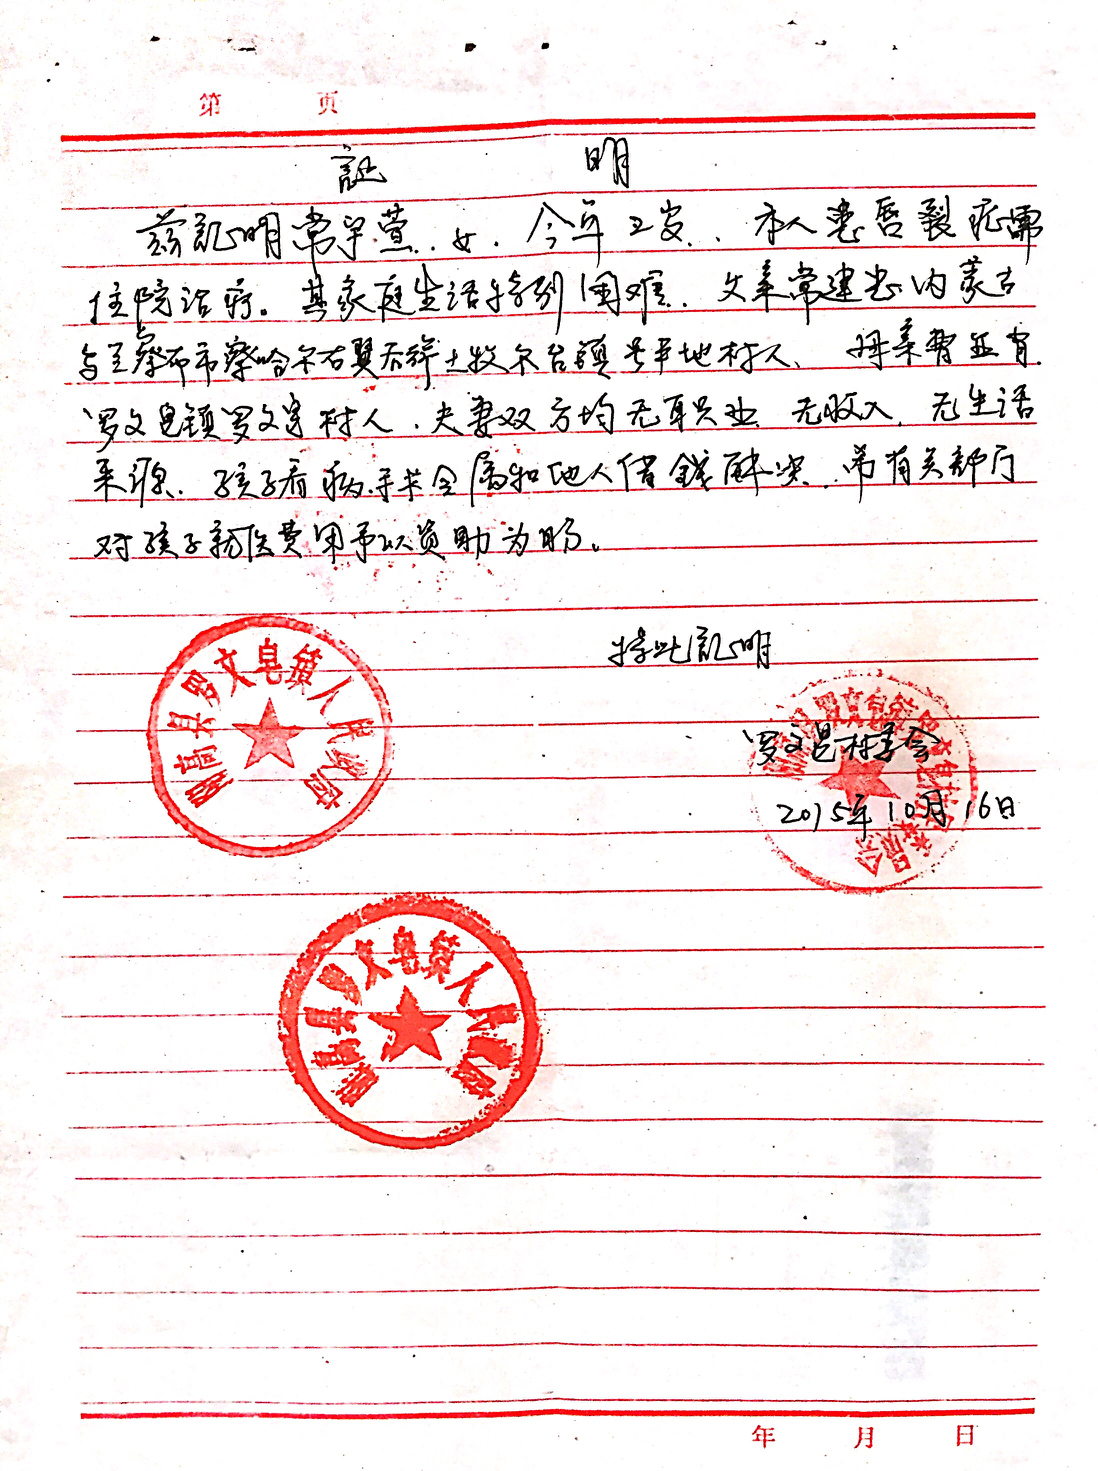 第 页
証 明
兹証明常宇萱.女.今年2岁..本人患唇裂症需
住院治疗。其家庭生活特别困难.父亲常建忠内蒙古
乌兰察布市察哈尔右翼后旗土牧尔台镇号半地村人、母亲曹亚青.
罗文皂镇罗文皂村人.夫妻双方均无职业.无收入.无生活
来源.孩子看病.手术全属和他人借錢解决.希有关部门
对孩子就医费用予以资助为盼。
特此証明
罗文皂村委会
2015年10月16日
阳高县罗文皂镇人民政府
阳高县罗文皂镇罗文皂村村民委员会
阳高县罗文皂镇人民政府
年 月 日